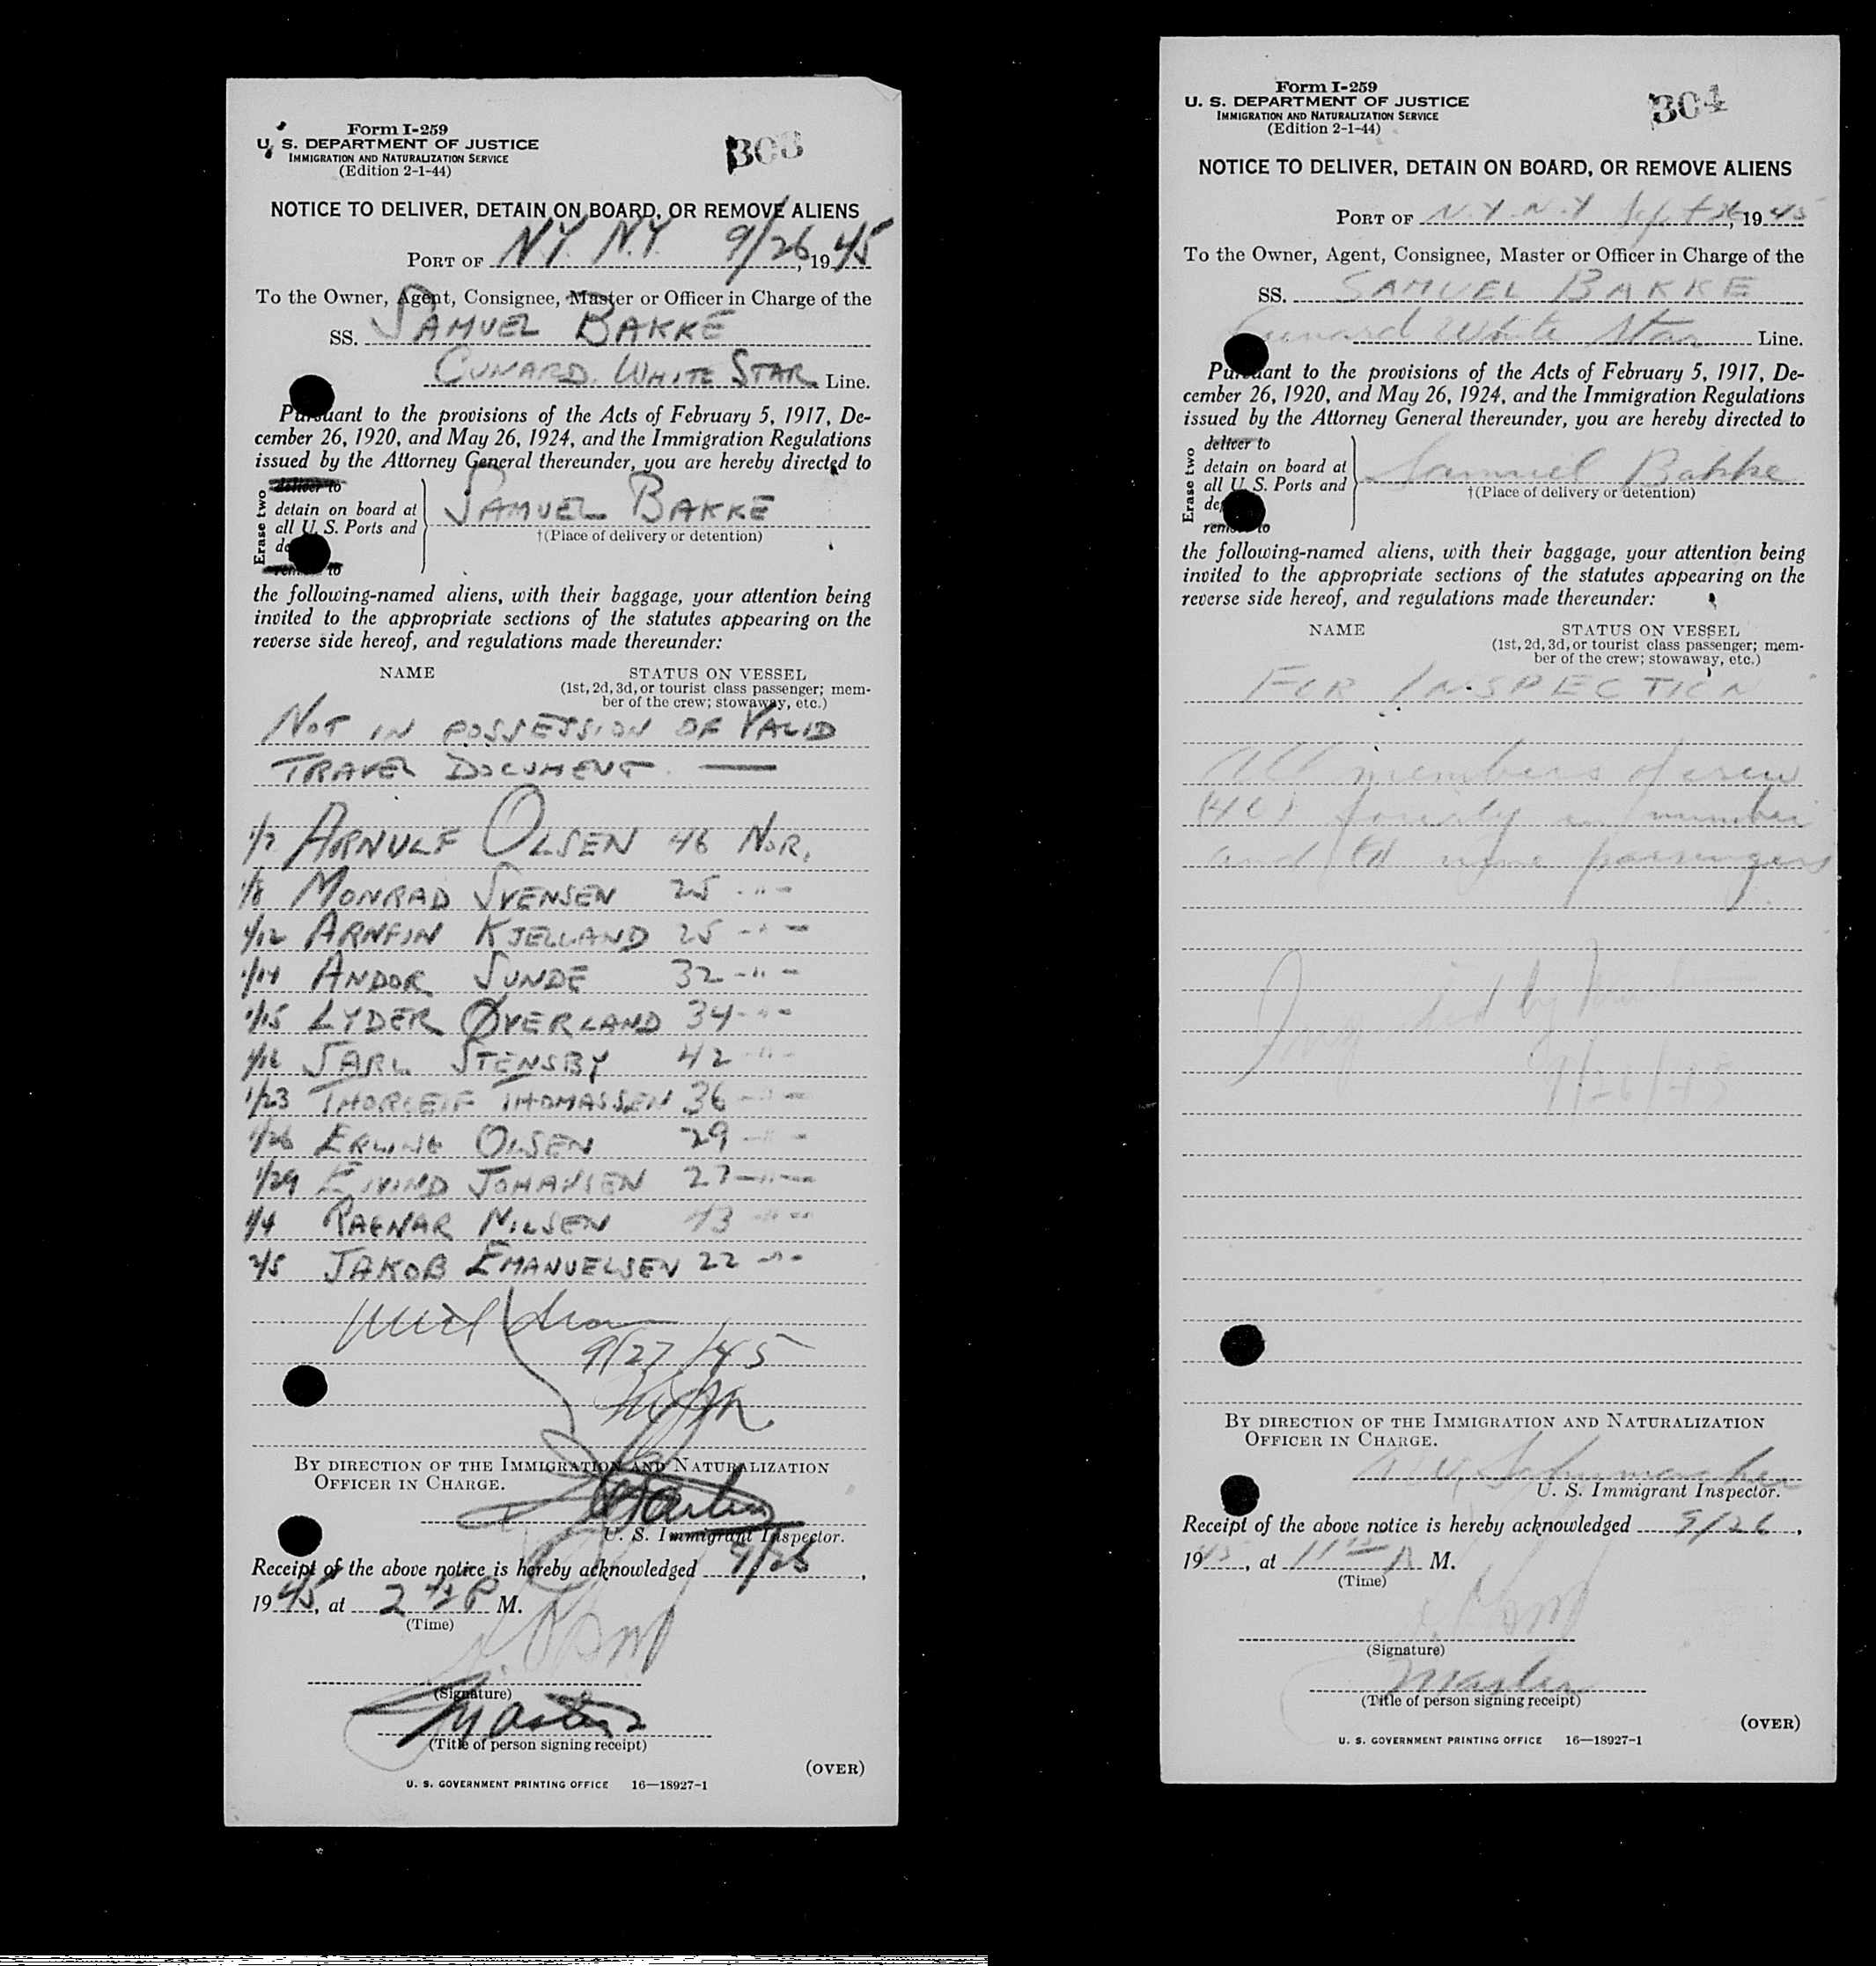 Form I-259
U. S. DEPARTMENT OF JUSTICE
IMMIGRATION AND NATURALIZATION SERVICE
(Edition 2-1-44)
303
NOTICE TO DELIVER, DETAIN ON BOARD, OR REMOVE ALIENS
PORT OF N.Y. N.Y. 9/26, 1945
To the Owner, Agent, Consignee, Master or Officer in Charge of the
SS. SAMUEL BAKKE
CUNARD WHITE STAR Line.
Pursuant to the provisions of the Acts of February 5, 1917, De-
cember 26, 1920, and May 26, 1924, and the Immigration Regulations
issued by the Attorney General thereunder, you are hereby directed to
Erase two
deliver to
detain on board at
all U. S. Ports and
remove to
SAMUEL BAKKE
†(Place of delivery or detention)
the following-named aliens, with their baggage, your attention being
invited to the appropriate sections of the statutes appearing on the
reverse side hereof, and regulations made thereunder:
NAME STATUS ON VESSEL
(1st, 2d, 3d, or tourist class passenger; mem-
ber of the crew; stowaway, etc.)
NOT IN POSSESSION OF VALID
TRAVEL DOCUMENT. —
1/7 ARNULF OLSEN 46 NOR.
1/8 MONRAD SVENSEN 25 -"-
1/12 ARNFIN KJELLAND 25 -"-
1/14 ANDOR SUNDE 32 -"-
1/15 LYDER ØVERLAND 34 -"-
1/16 JARL STENSBY 42 -"-
1/23 THORLEIF THOMASSEN 36 -"-
1/26 ERLING OLSEN 29 -"-
1/29 EIVIND JOHANSEN 27 -"-
RAGNAR NILSEN 43 -"-
2/5 JAKOB EMANUELSEN 22 -"-
9/27/45
BY DIRECTION OF THE IMMIGRATION AND NATURALIZATION
OFFICER IN CHARGE.
U. S. Immigrant Inspector.
Receipt of the above notice is hereby acknowledged 9/26,
1945, at 2 P M.
(Time)
(Signature)
Master
(Title of person signing receipt)
(OVER)
U. S. GOVERNMENT PRINTING OFFICE 16—18927-1
Form I-259
U. S. DEPARTMENT OF JUSTICE
IMMIGRATION AND NATURALIZATION SERVICE
(Edition 2-1-44)
304
NOTICE TO DELIVER, DETAIN ON BOARD, OR REMOVE ALIENS
PORT OF N.Y. N.Y Sept 26, 1945
To the Owner, Agent, Consignee, Master or Officer in Charge of the
SS. SAMUEL BAKKE
Cunard White Star Line.
Pursuant to the provisions of the Acts of February 5, 1917, De-
cember 26, 1920, and May 26, 1924, and the Immigration Regulations
issued by the Attorney General thereunder, you are hereby directed to
Erase two
deliver to
detain on board at
all U. S. Ports and
remove to
Samuel Bakke
†(Place of delivery or detention)
the following-named aliens, with their baggage, your attention being
invited to the appropriate sections of the statutes appearing on the
reverse side hereof, and regulations made thereunder:
NAME STATUS ON VESSEL
(1st, 2d, 3d, or tourist class passenger; mem-
ber of the crew; stowaway, etc.)
FOR INSPECTION
All members of crew
(40) fourty in number
and nine passengers
9/26/45
BY DIRECTION OF THE IMMIGRATION AND NATURALIZATION
OFFICER IN CHARGE.
Schumacher
U. S. Immigrant Inspector.
Receipt of the above notice is hereby acknowledged 9/26,
1945, at 11 A M.
(Time)
(Signature)
Master
(Title of person signing receipt)
(OVER)
U. S. GOVERNMENT PRINTING OFFICE 16—18927-1